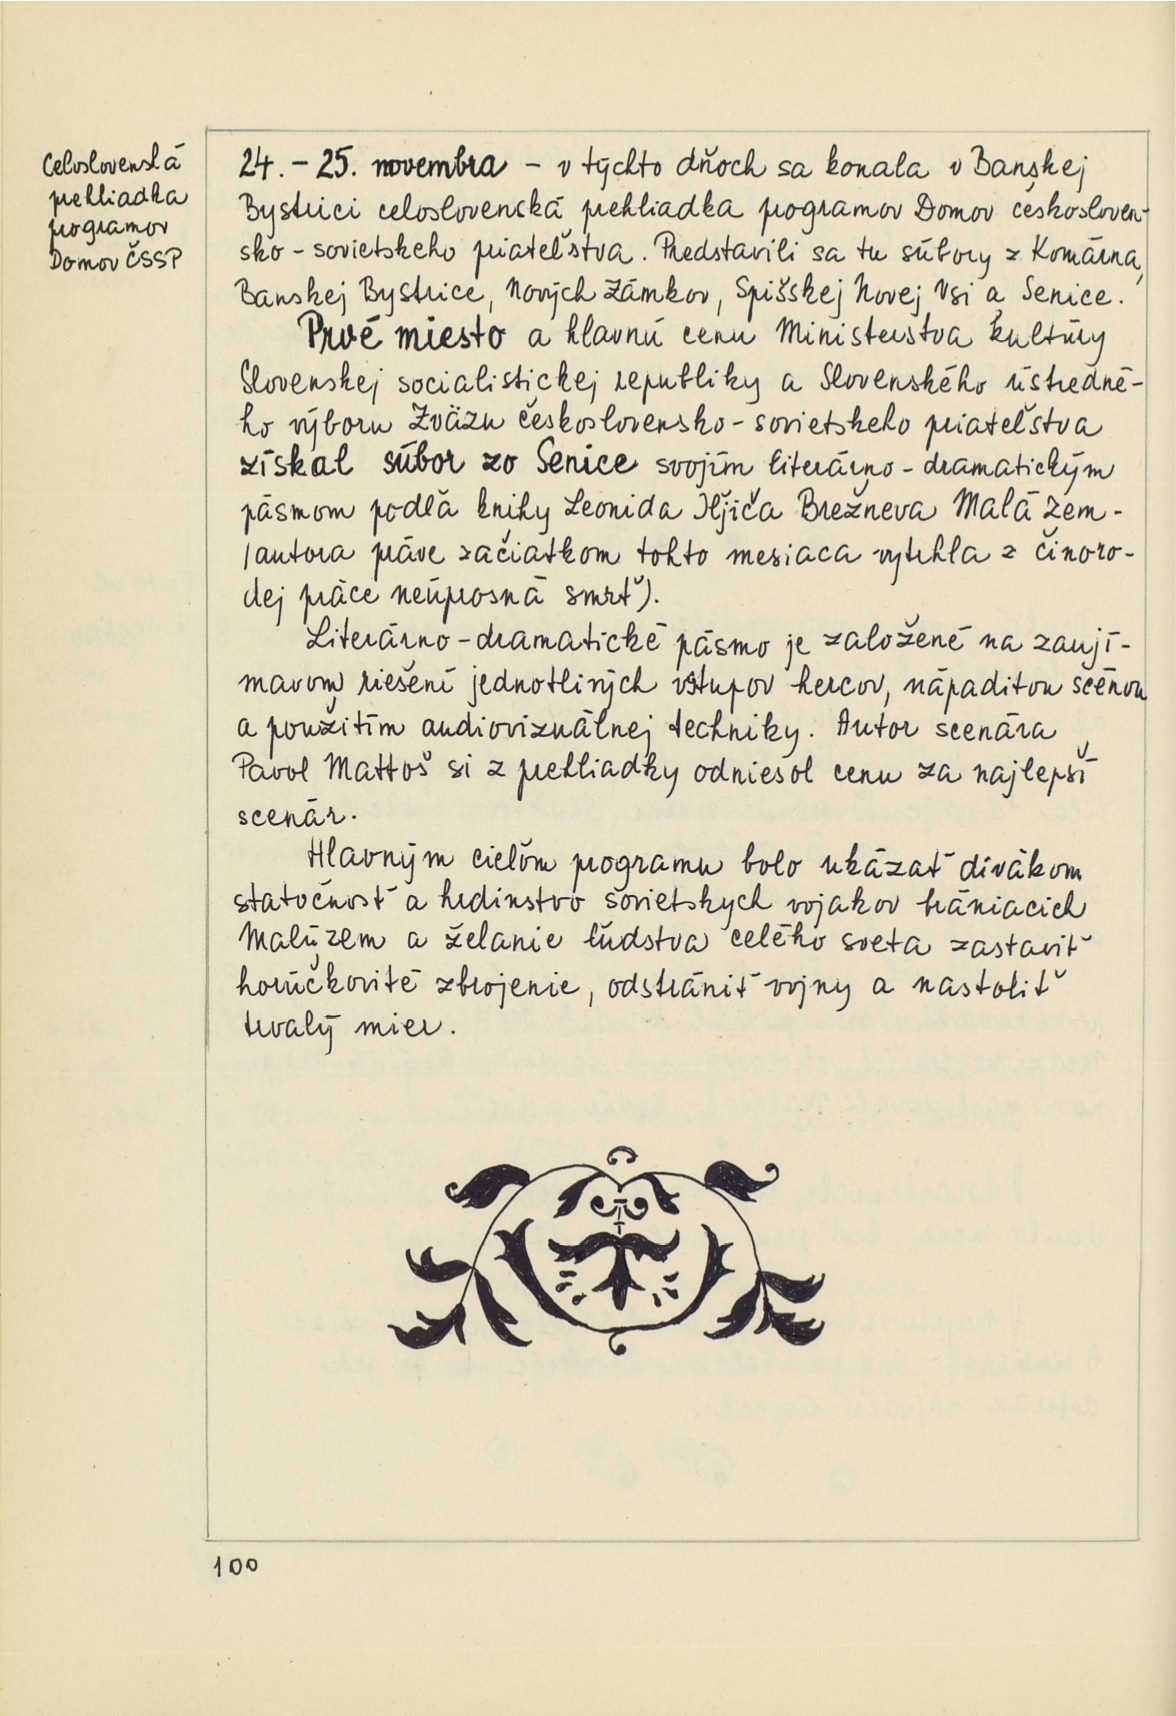 Celoslovenská
prehliadka
programov
Domov ČSSP
24. - 25. novembra - v týchto dňoch sa konala v Banskej
Bystrici celoslovenská prehliadka programov Domov českosloven-
sko - sovietskeho priateľstva. Predstavili sa tu súbory z Komárna,
Banskej Bystrice, Nových Zámkov, Spišskej Novej Vsi a Senice.
Prvé miesto a hlavnú cenu Ministerstva kultúry
Slovenskej socialistickej republiky a Slovenského ústredné-
ho výboru Zväzu československo - sovietskeho priateľstva
získal súbor zo Senice svojím literárno - dramatickým
pásmom podľa knihy Leonida Iľjiča Brežneva Malá zem -
(autora práve začiatkom tohto mesiaca vytrhla z činoro-
dej práce neúprosná smrť).
Literárno - dramatické pásmo je založené na zaují-
mavom riešení jednotlivých vstupov hercov, nápaditou scénou
a použitím audiovizuálnej techniky. Autor scenára
Pavol Mattoš si z prehliadky odniesol cenu za najlepší
scenár.
Hlavným cieľom programu bolo ukázať divákom
statočnosť a hrdinstvo sovietskych vojakov brániacich
Malú zem a želanie ľudstva celého sveta zastaviť
horúčkovité zbrojenie, odstrániť vojny a nastoliť
trvalý mier.
100